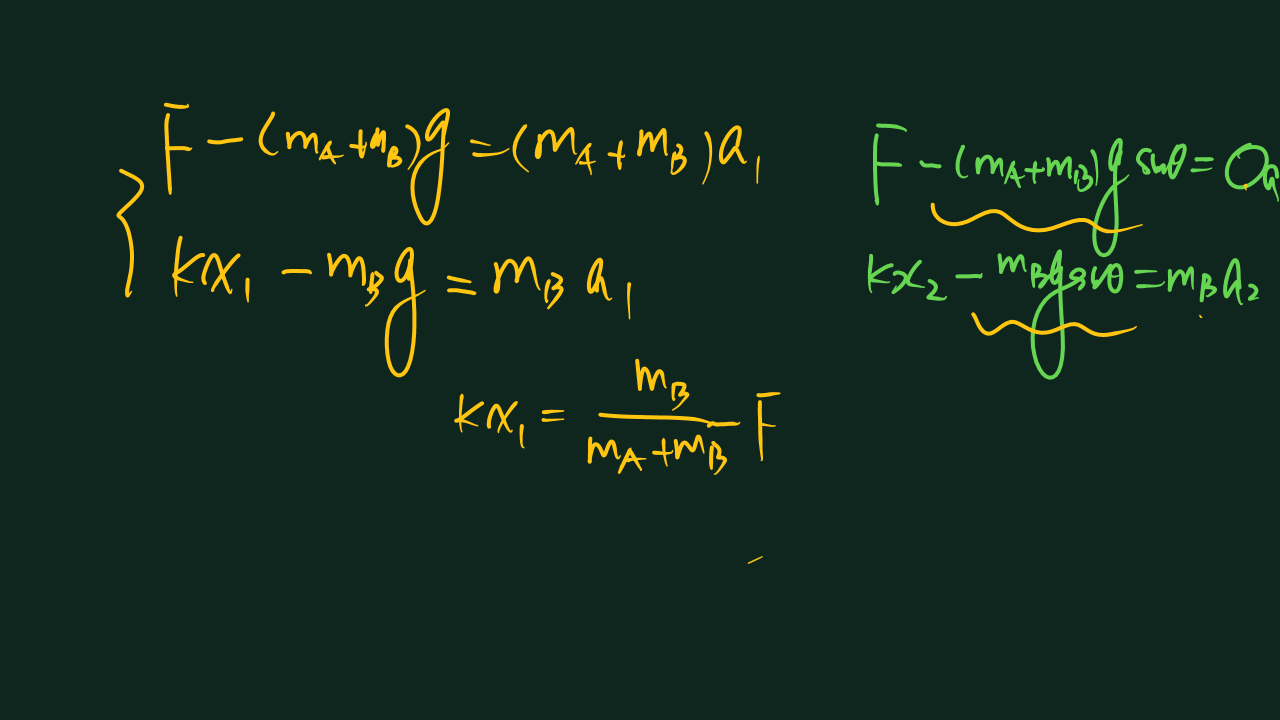 F - (mA+mB)g = (mA+mB)a1
kx1 - mBg = mBa1
kx1 = mB/(mA+mB) F
F - (mA+mB)g sinθ = 
kx2 - mBg sinθ = mBa2